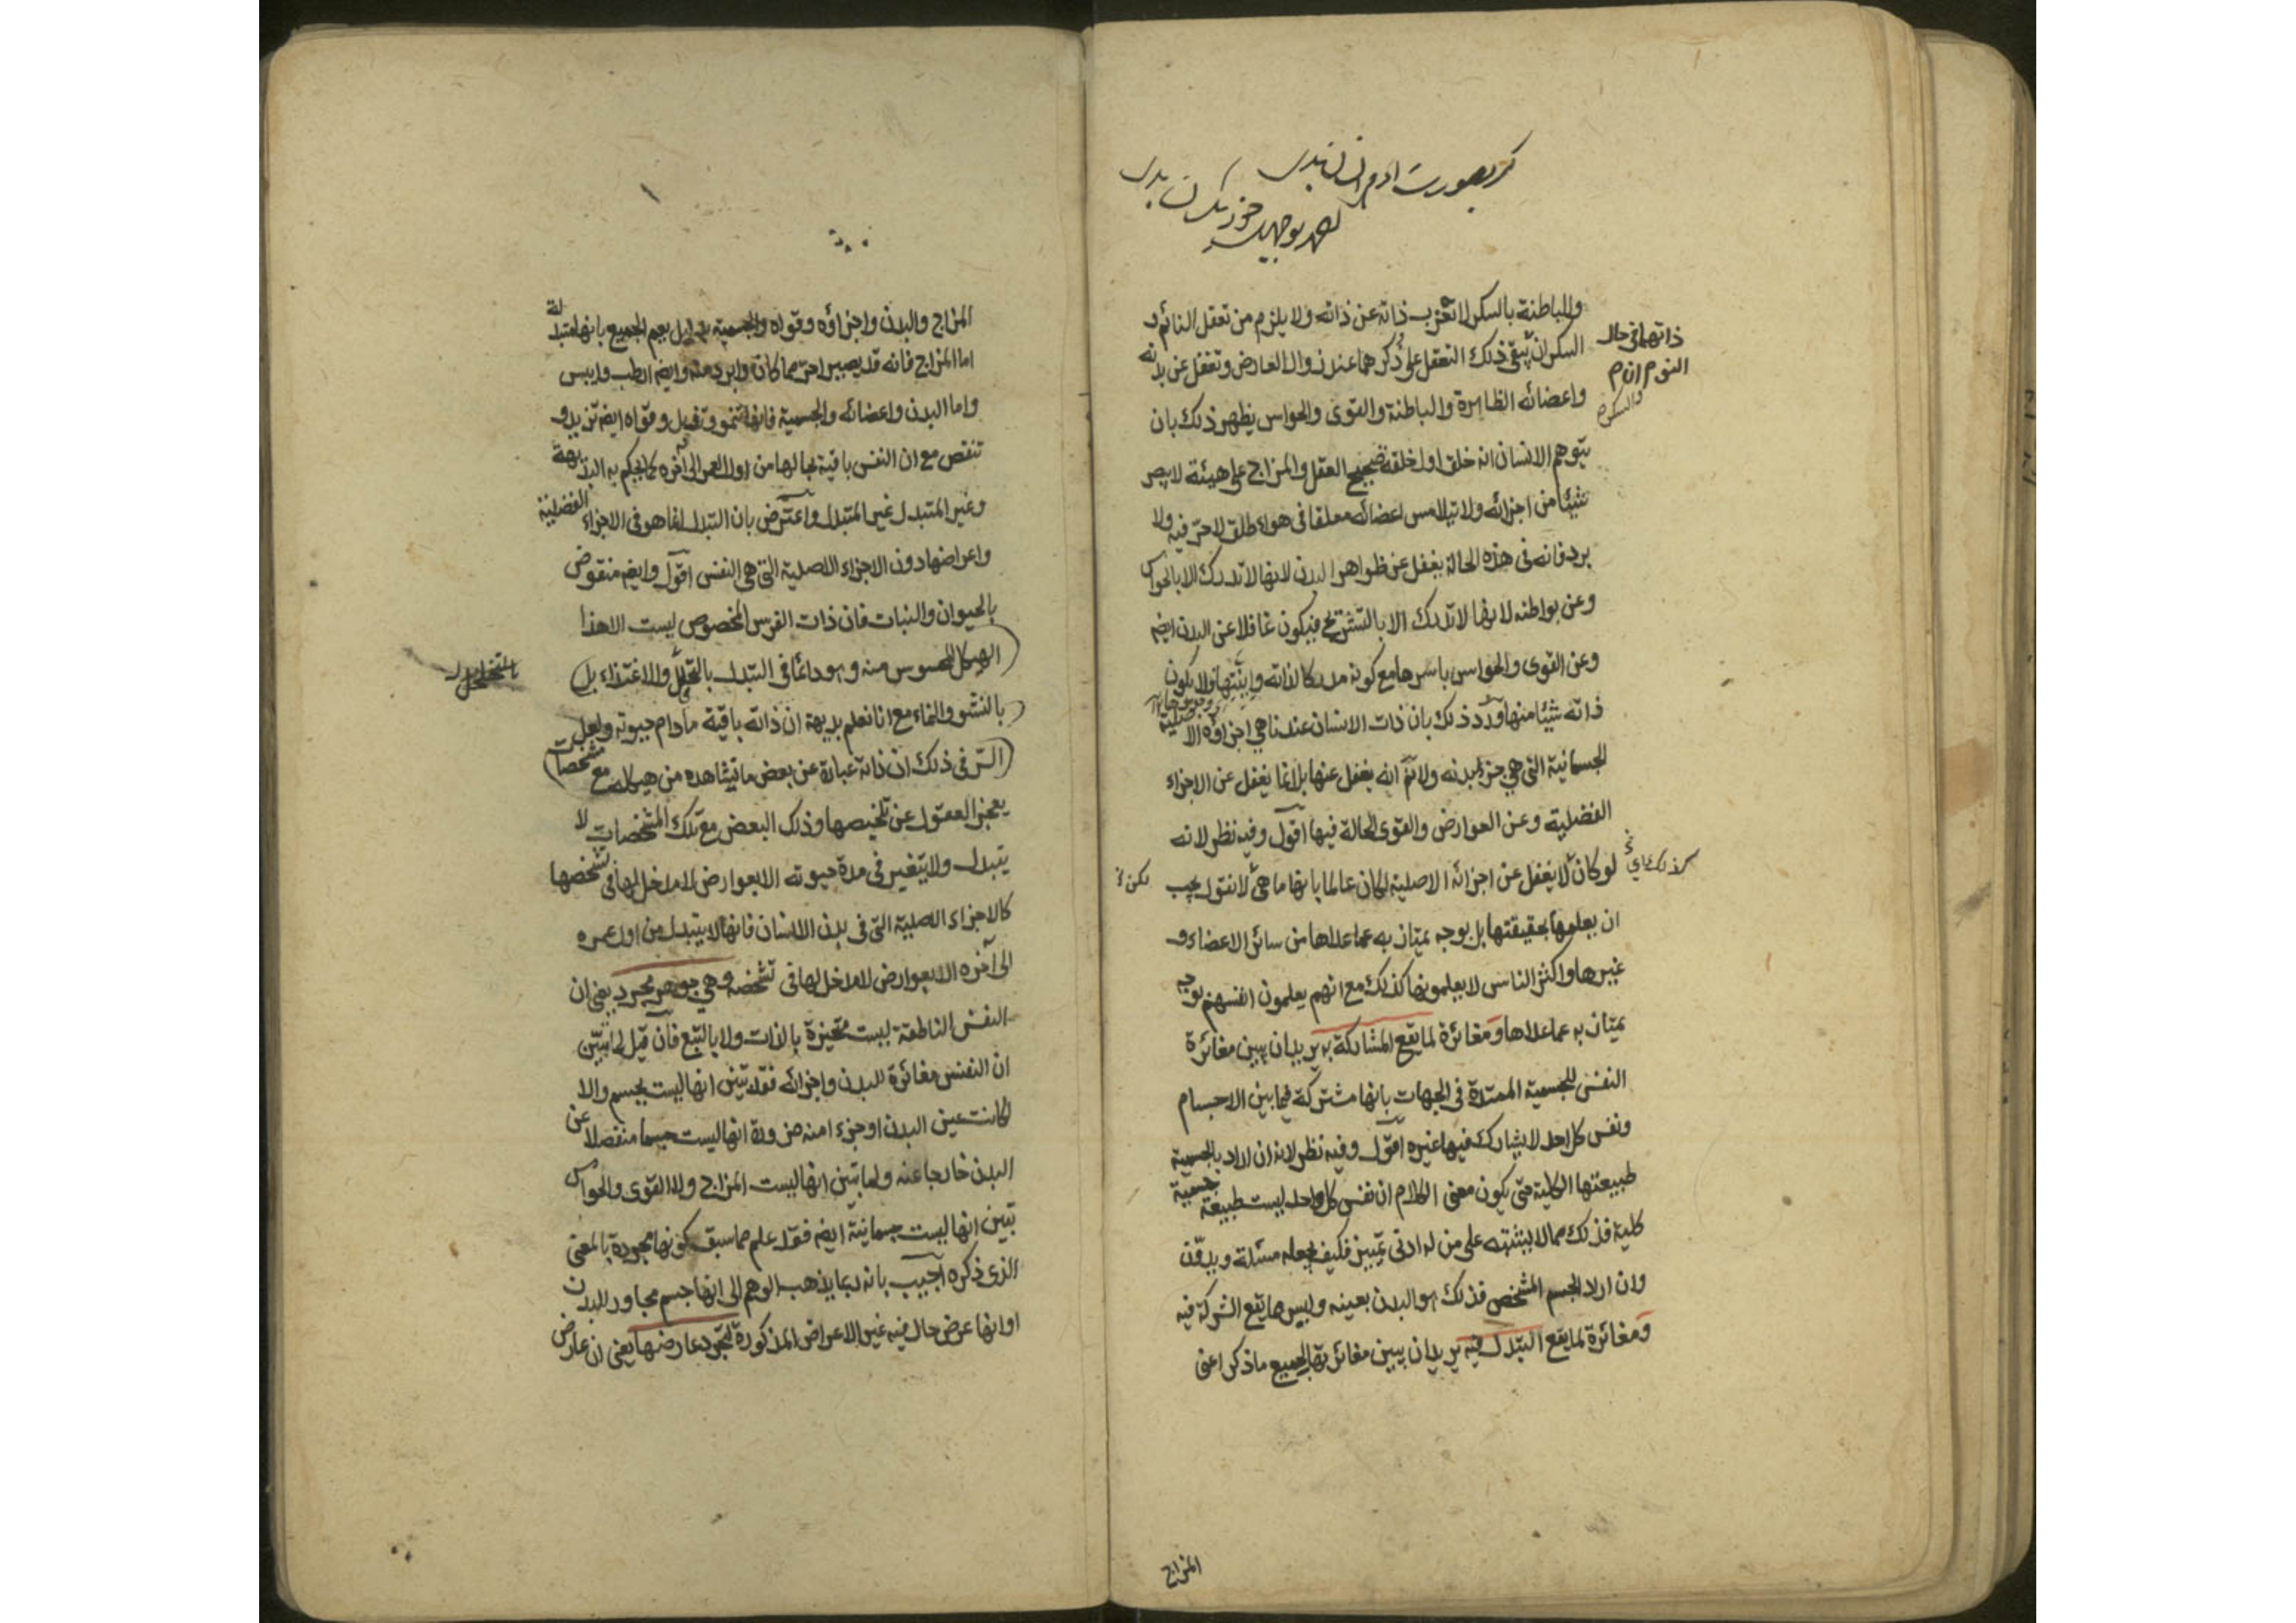 گر بصورت ادم انسان بدی
احمد و بوجهل خود یکسان بدی
والباطنة بالسكر لا تعزب ذاته عن ذاته ولا يلزم من تعقل النائم و
ذاتهما فى حال
النوم
والسكر
السكران ذلك التعقل على ذكرهما عند زوال العارض وتغفل عن بدنه
واعضائه الظاهرة والباطنة والقوى والحواس يظهر ذلك بان
يتوهم الانسان انه خلق اول خلقه صحيح العقل والمزاج على هيئة لا يبصر
شيئا من اجزائه ولا يتلامس اعضائه معلقا فى هواء طلق لا حر فيه ولا
برد فانه فى هذه الحالة يغفل عن ظواهر البدن لانها لا تدرك الا بالحواس
وعن بواطنه لانها لا تدرك الا بالتشريح فيكون غافلا عن البدن ايضم
وعن القوى والحواس باسرها مع كونه مدركا لذاته وانيتها ولا يكون
ذاته شيئا منها ورد ذلك بان ذات الانسان عندنا هى اجزاؤه الاصلية
الجسمانية التى هى جزء لبدنه ولا نم انه يغفل عنها بل انما يغفل عن الاجزاء
الفضلية وعن العوارض والقوى الحالة فيها اقول وفيه نظر لانه
لو كان لا يغفل عن اجزائه الاصلية لكان عالما بانها ما هى لا نقول يجب
ان يعلمها بحقيقتها بل بوجه يمتاز به عما عداها من سائر الاعضاء و
غيرها واكثر الناس لا يعلمونها كذلك مع انهم يعلمون انفسهم بوجه
يمتاز به عما عداها ومغائرة لما يقع المشاركة به يريد ان يبين مغائرة
النفس للجسمية الممتدة فى الجهات بانها مشتركة فيما بين الاجسام
ونفس كل احد لا يشارك فيها غيره اقول وفيه نظر لانه ان اراد بالجسمية
طبيعتها الكلية حتى يكون معنى الكلام ان نفس كل واحد ليست طبيعة جسمية
كلية فذلك مما لا يشتبه على من له ادنى تمييز فكيف يجعله مسئلة ويدون
وان اراد الجسم المشخص فذلك هو البدن بعينه وليس مما يقع الشركة فيه
ومغائرة لما يقع التبدل فيه يريد ان يبين مغائرتها لجميع ما ذكر اعنى
المزاج
المزاج والبدن واجزاؤه وقواه والجسمية بدليل يعم الجميع بانها متبدلة
اما المزاج فانه قد يصير احر مما كان وابرد منه وايضم ارطب وايبس
واما البدن واعضائه والجسمية فانها تنمو وتذبل وقواه ايضم تزيد و
تنقص مع ان النفس باقية بحالها من اول العمر الى آخره كما يحكم به البديهة
وغير المتبدل غير المتبدل واعترض بان التبدل انما هو فى الاجزاء الفضلية
واعراضها دون الاجزاء الاصلية التى هى النفس اقول وايضم منقوض
بالحيوان والنبات فان ذات الفرس المخصوص ليست الا هذا
الهيكل المحسوس منه وهو دائما فى التبدل بالتحلل والاغتذاء بل
بالنشو والنماء مع انا نعلم بديهة ان ذاته باقية ما دام حيوته ولعل
السر فى ذلك ان ذاته عبارة عن بعض ما يشاهده من هيكله مع مشخصات
يعجز العقول عن تلخيصها وذلك البعض مع تلك المشخصات لا
يتبدل ولا يتغير فى مدة حيوته الا بعوارض لا مدخل لها فى تشخصها
كالاجزاء الصلبية التى فى بدن الانسان فانها لا يتبدل من اول عمره
الى آخره الا بعوارض لا مدخل لها فى تشخصه وهى جوهر مجرد يعنى ان
النفس الناطقة ليست متحيزة بالذات ولا بالتبع فان قيل لما تبين
ان النفس مغائرة للبدن واجزائه فقد تبين انها ليست بجسم والا
لكانت عين البدن او جزءا منه ضرورة انها ليست جسما منفصلا عن
البدن خارجا عنه ولما تبين انها ليست المزاج ولا القوى والحواس
تبين انها ليست جسمانية ايضم فقد علم مما سبق كونها مجردة بالمعنى
الذى ذكره اجيب بانه ربما يذهب الوهم الى انها جسم مجاور للبدن
او انها عرض حال فيه غير الاعراض المذكورة لتجرد عارضها يعنى ان عارض